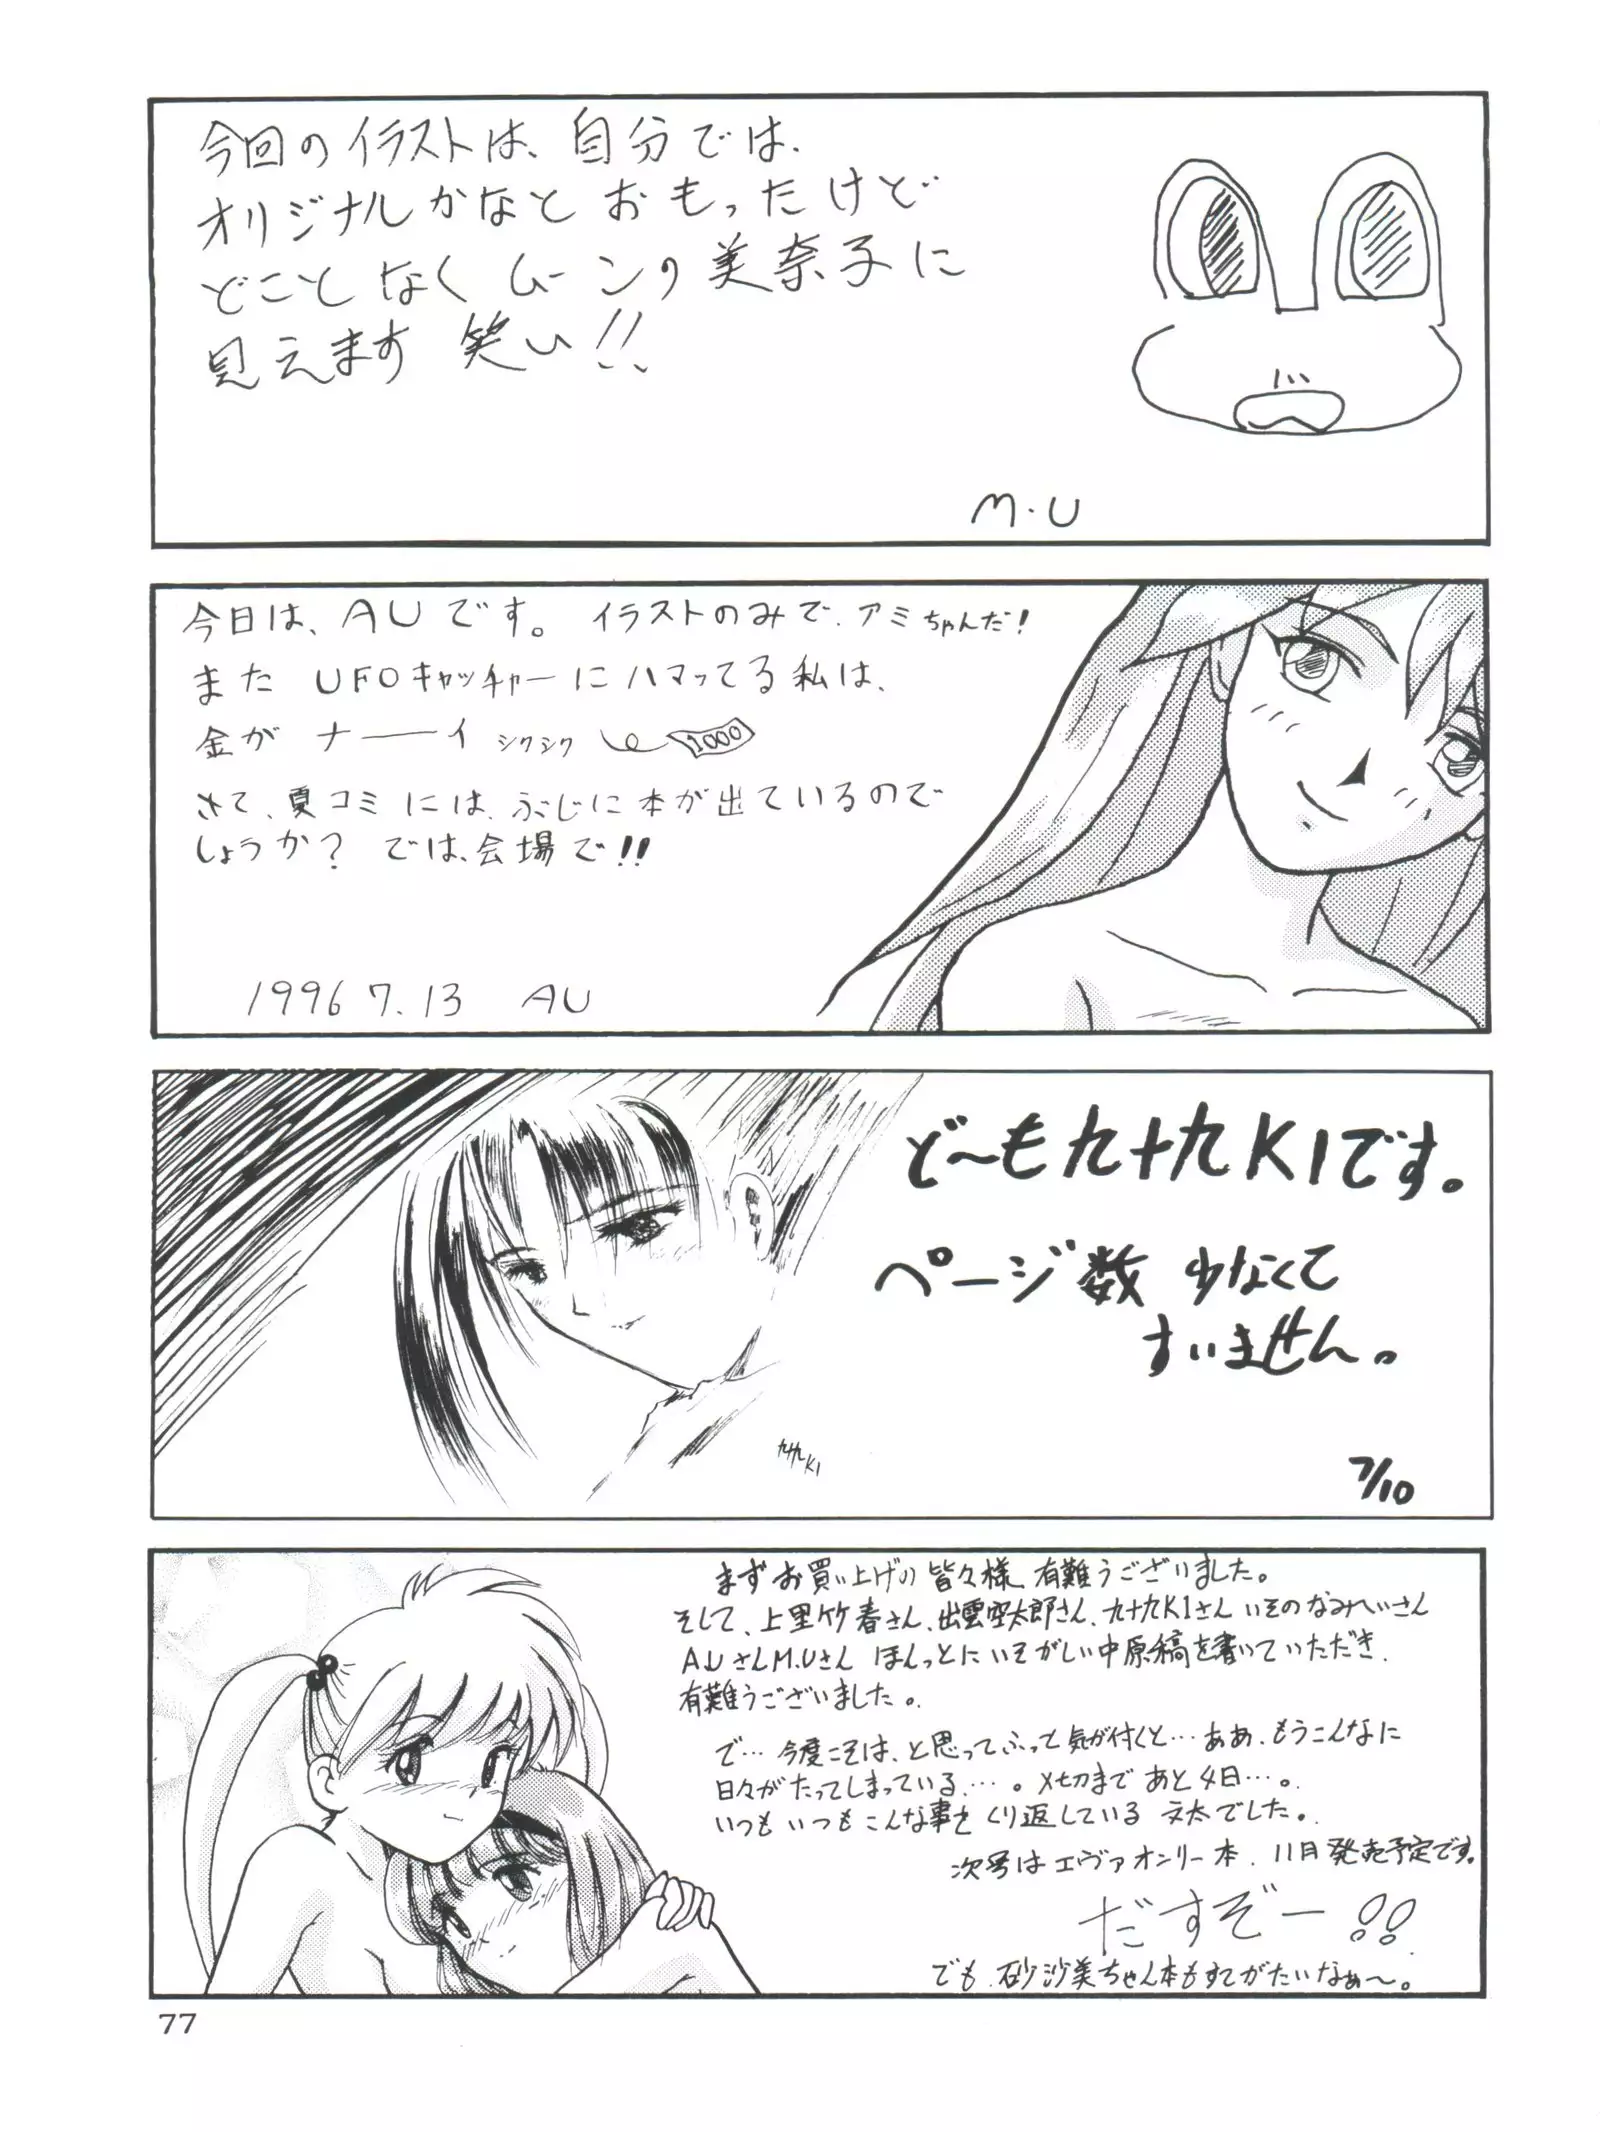 今回のイラストは、自分では、
オリジナルかなと おもったけど
どことなく ムーンの美奈子に
見えます 笑い!!
M.U
今日は、AUです。 イラストのみで、アミちゃんだ!
また UFOキャッチャーにハマッてる私は、
金が ナ――イ シクシク 1000
さて、夏コミには、ぶじに本が出ているので
しょうか? では、会場で!!
1996 7.13 AU
ど〜も九十九KIです。
ページ数 少なくて
すいません。
九十九KI
7/10
まずお買い上げの皆々様、有難うございました。
そして、上里竹春さん、出雲空太郎さん、九十九KIさん いそのなみへいさん
A.UさんM.Uさん ほんっとにいそがしい中原稿を書いていただき、
有難うございました。
で…今度こそは、と思ってふって気が付くと…ああ、もうこんなに
日々がたってしまっている…。〆切まであと4日…。
いつもいつもこんな事をくり返している 文太でした。
次号はエヴァオンリー本、11月発売予定です。
だすぞー!!
でも、砂沙美ちゃん本もすてがたいなぁ〜。
77